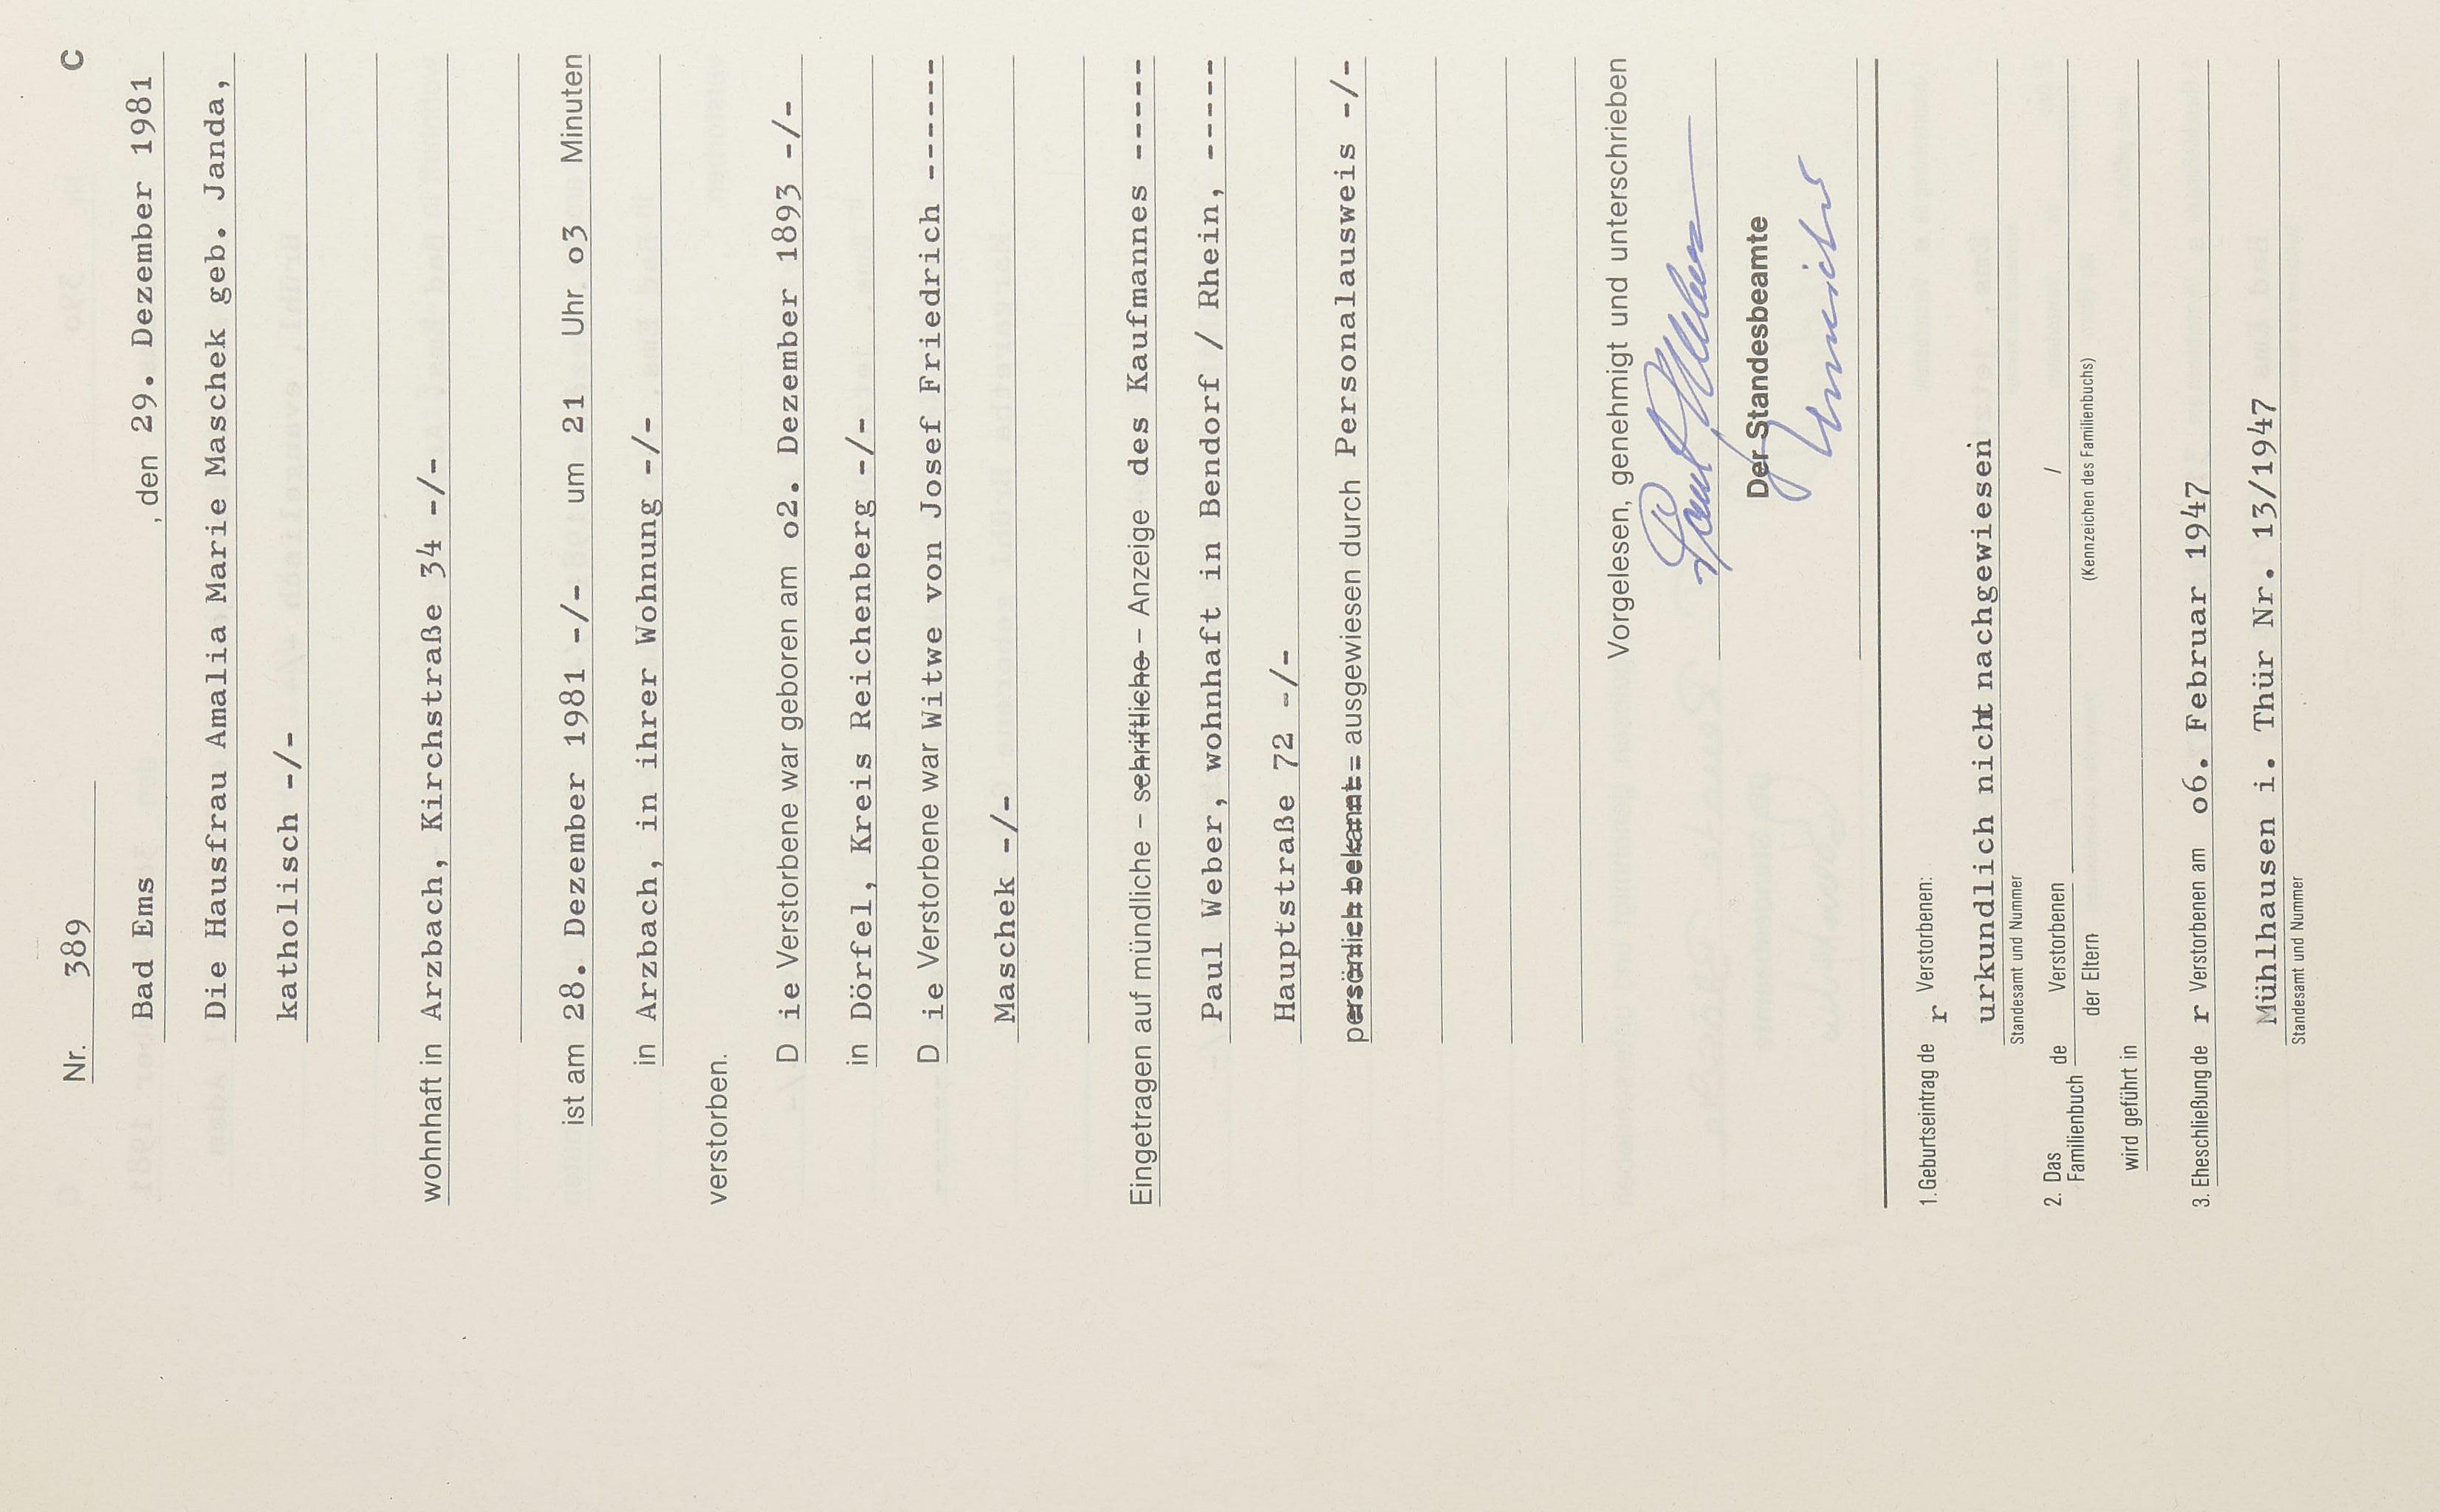 Nr. 389 C
Bad Ems , den 29. Dezember 1981
Die Hausfrau Amalia Marie Maschek geb. Janda,
katholisch -/-
wohnhaft in Arzbach, Kirchstraße 34 -/-
ist am 28. Dezember 1981 -/- um 21 Uhr o3 Minuten
in Arzbach, in ihrer Wohnung -/-
verstorben.
D ie Verstorbene war geboren am o2. Dezember 1893 -/-
in Dörfel, Kreis Reichenberg -/-
D ie Verstorbene war Witwe von Josef Friedrich ------
Maschek -/-
Eingetragen auf mündliche – schriftliche – Anzeige des Kaufmannes -----
Paul Weber, wohnhaft in Bendorf / Rhein, -----
Hauptstraße 72 -/-
persönlich bekannt = ausgewiesen durch Personalausweis -/-
Vorgelesen, genehmigt und unterschrieben
Paul Weber
Der Standesbeamte
1. Geburtseintrag de r Verstorbenen:
urkundlich nicht nachgewiesen
Standesamt und Nummer
2. Das Familienbuch de Verstorbenen /
der Eltern (Kennzeichen des Familienbuchs)
wird geführt in
3. Eheschließung de r Verstorbenen am o6. Februar 1947
Mühlhausen i. Thür Nr. 13/1947
Standesamt und Nummer